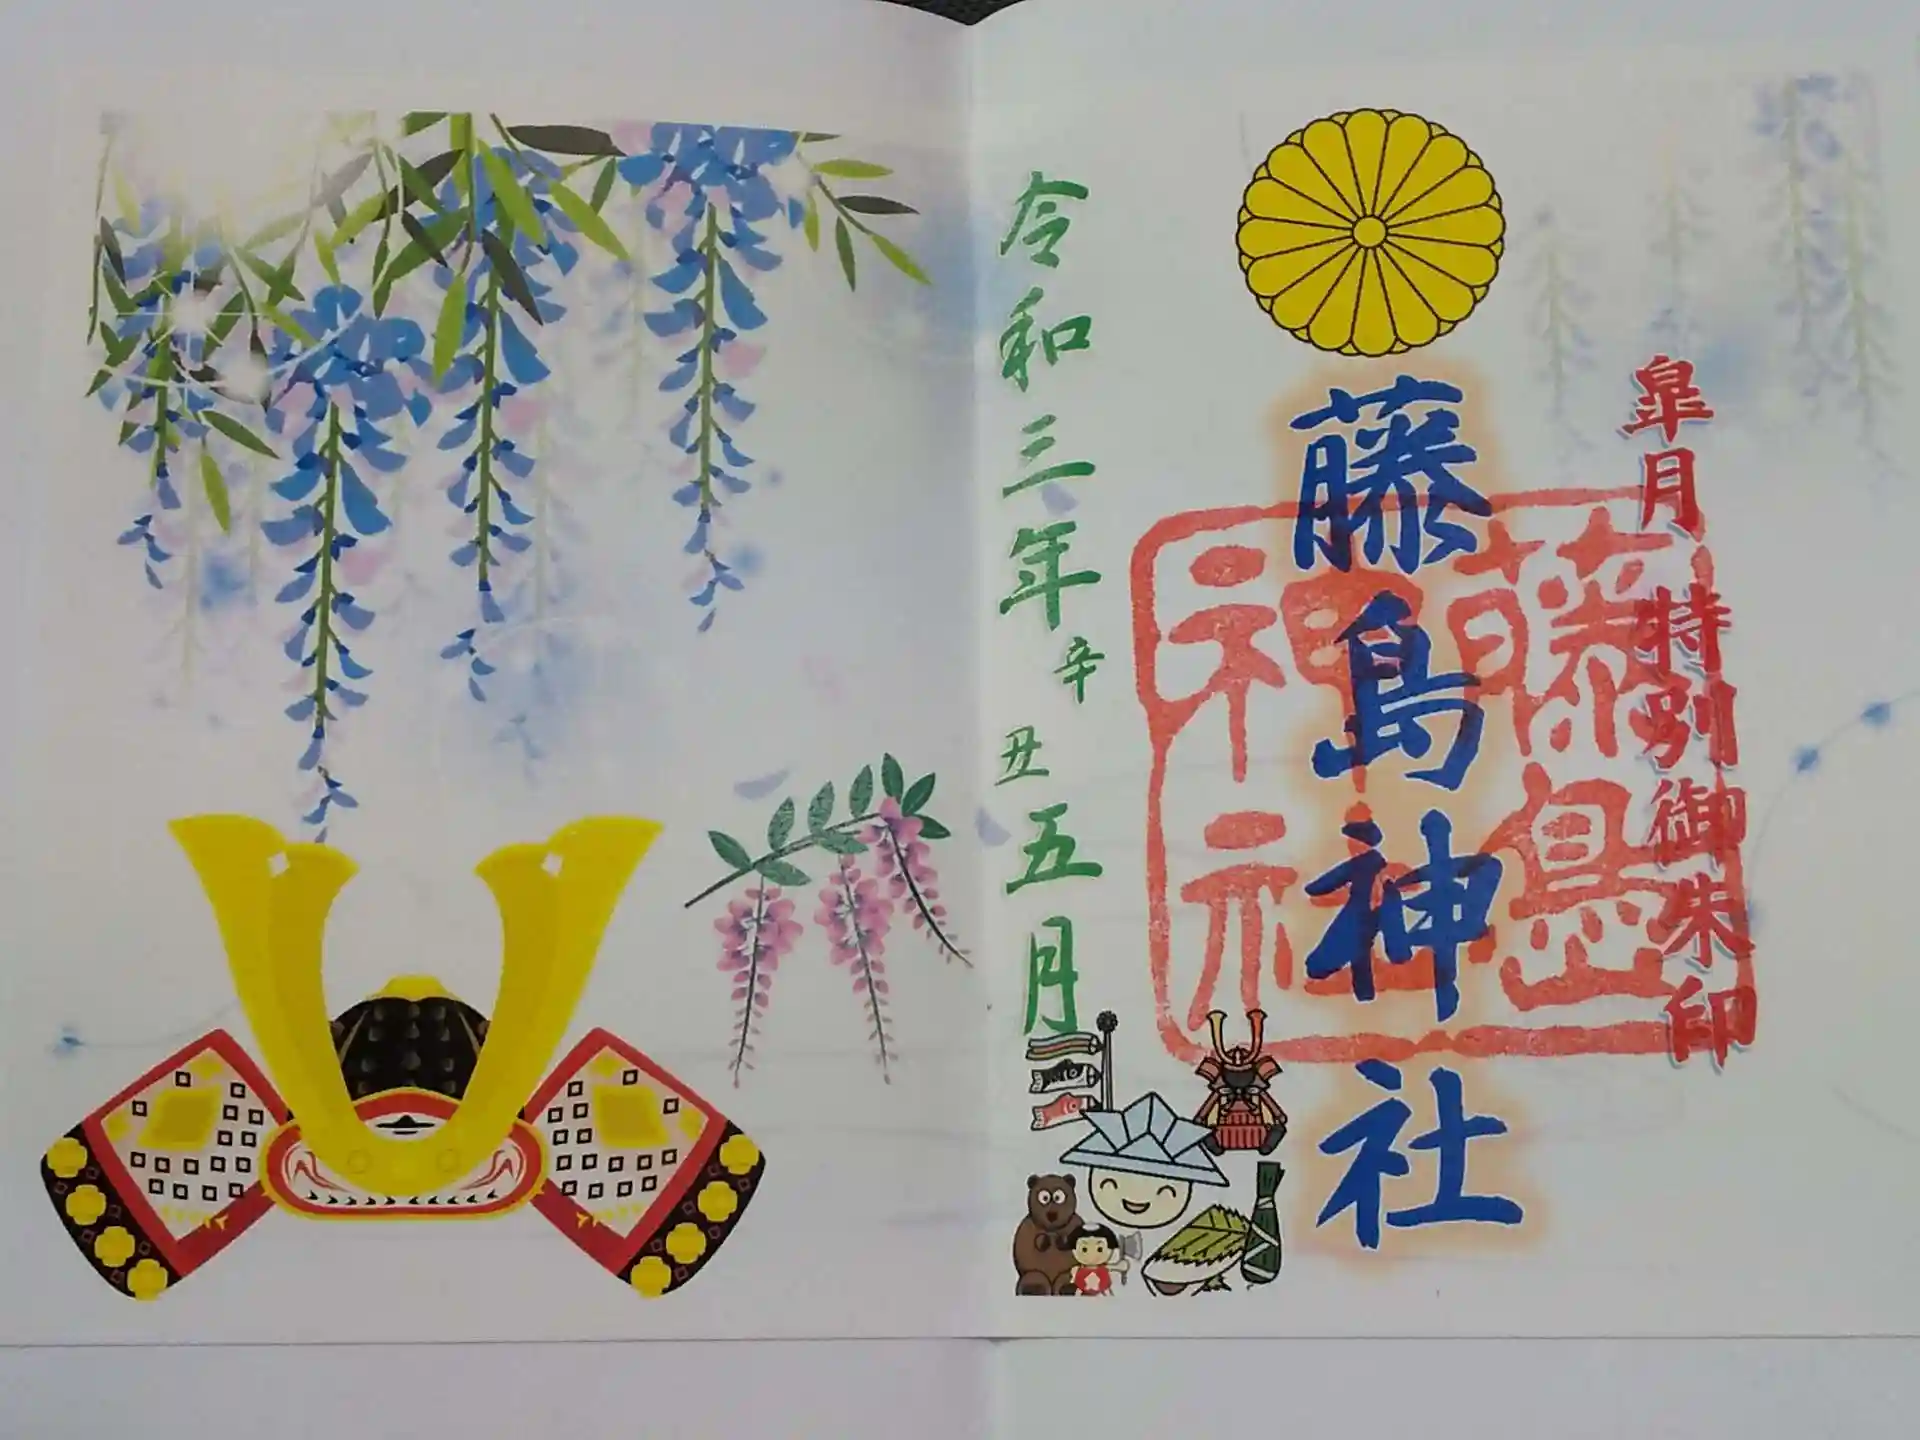 皐月 特別御朱印
藤島神社
藤島
神社
令和三年 辛 丑 五月